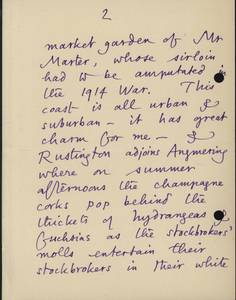 2
market garden of Mr
Marter, whose sirloin
had to be amputated in
the 1914 War. This
coast is all urban &
suburban – it has great
charm for me – &
Rustington adjoins Angmering
where on summer
afternoons the champagne
corks pop behind the
thickets of hydrangeas &
fuchsias as the stockbrokers'
molls entertain their
stockbrokers in their white